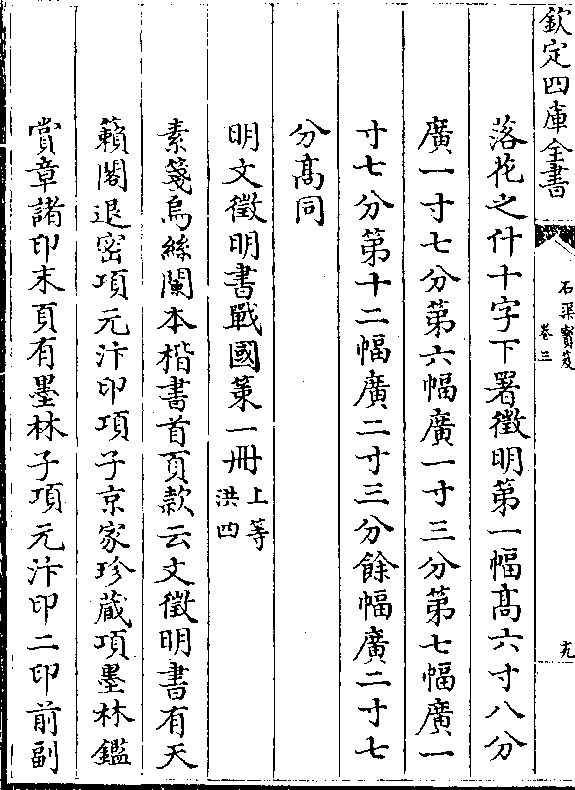 欽定四庫全書
石渠寶笈
卷三
十九
落花之什十字下署徵明第一幅高六寸八分
廣一寸七分第六幅廣一寸三分第七幅廣一
寸七分第十二幅廣二寸三分餘幅廣二寸七
分高同
明文徵明書戰國策一冊上等
洪四
素箋烏絲闌本楷書首頁款云文徵明書有天
籟閣退密項元汴印項子京家珍藏項墨林鑑
賞章諸印末頁有墨林子項元汴印二印前副